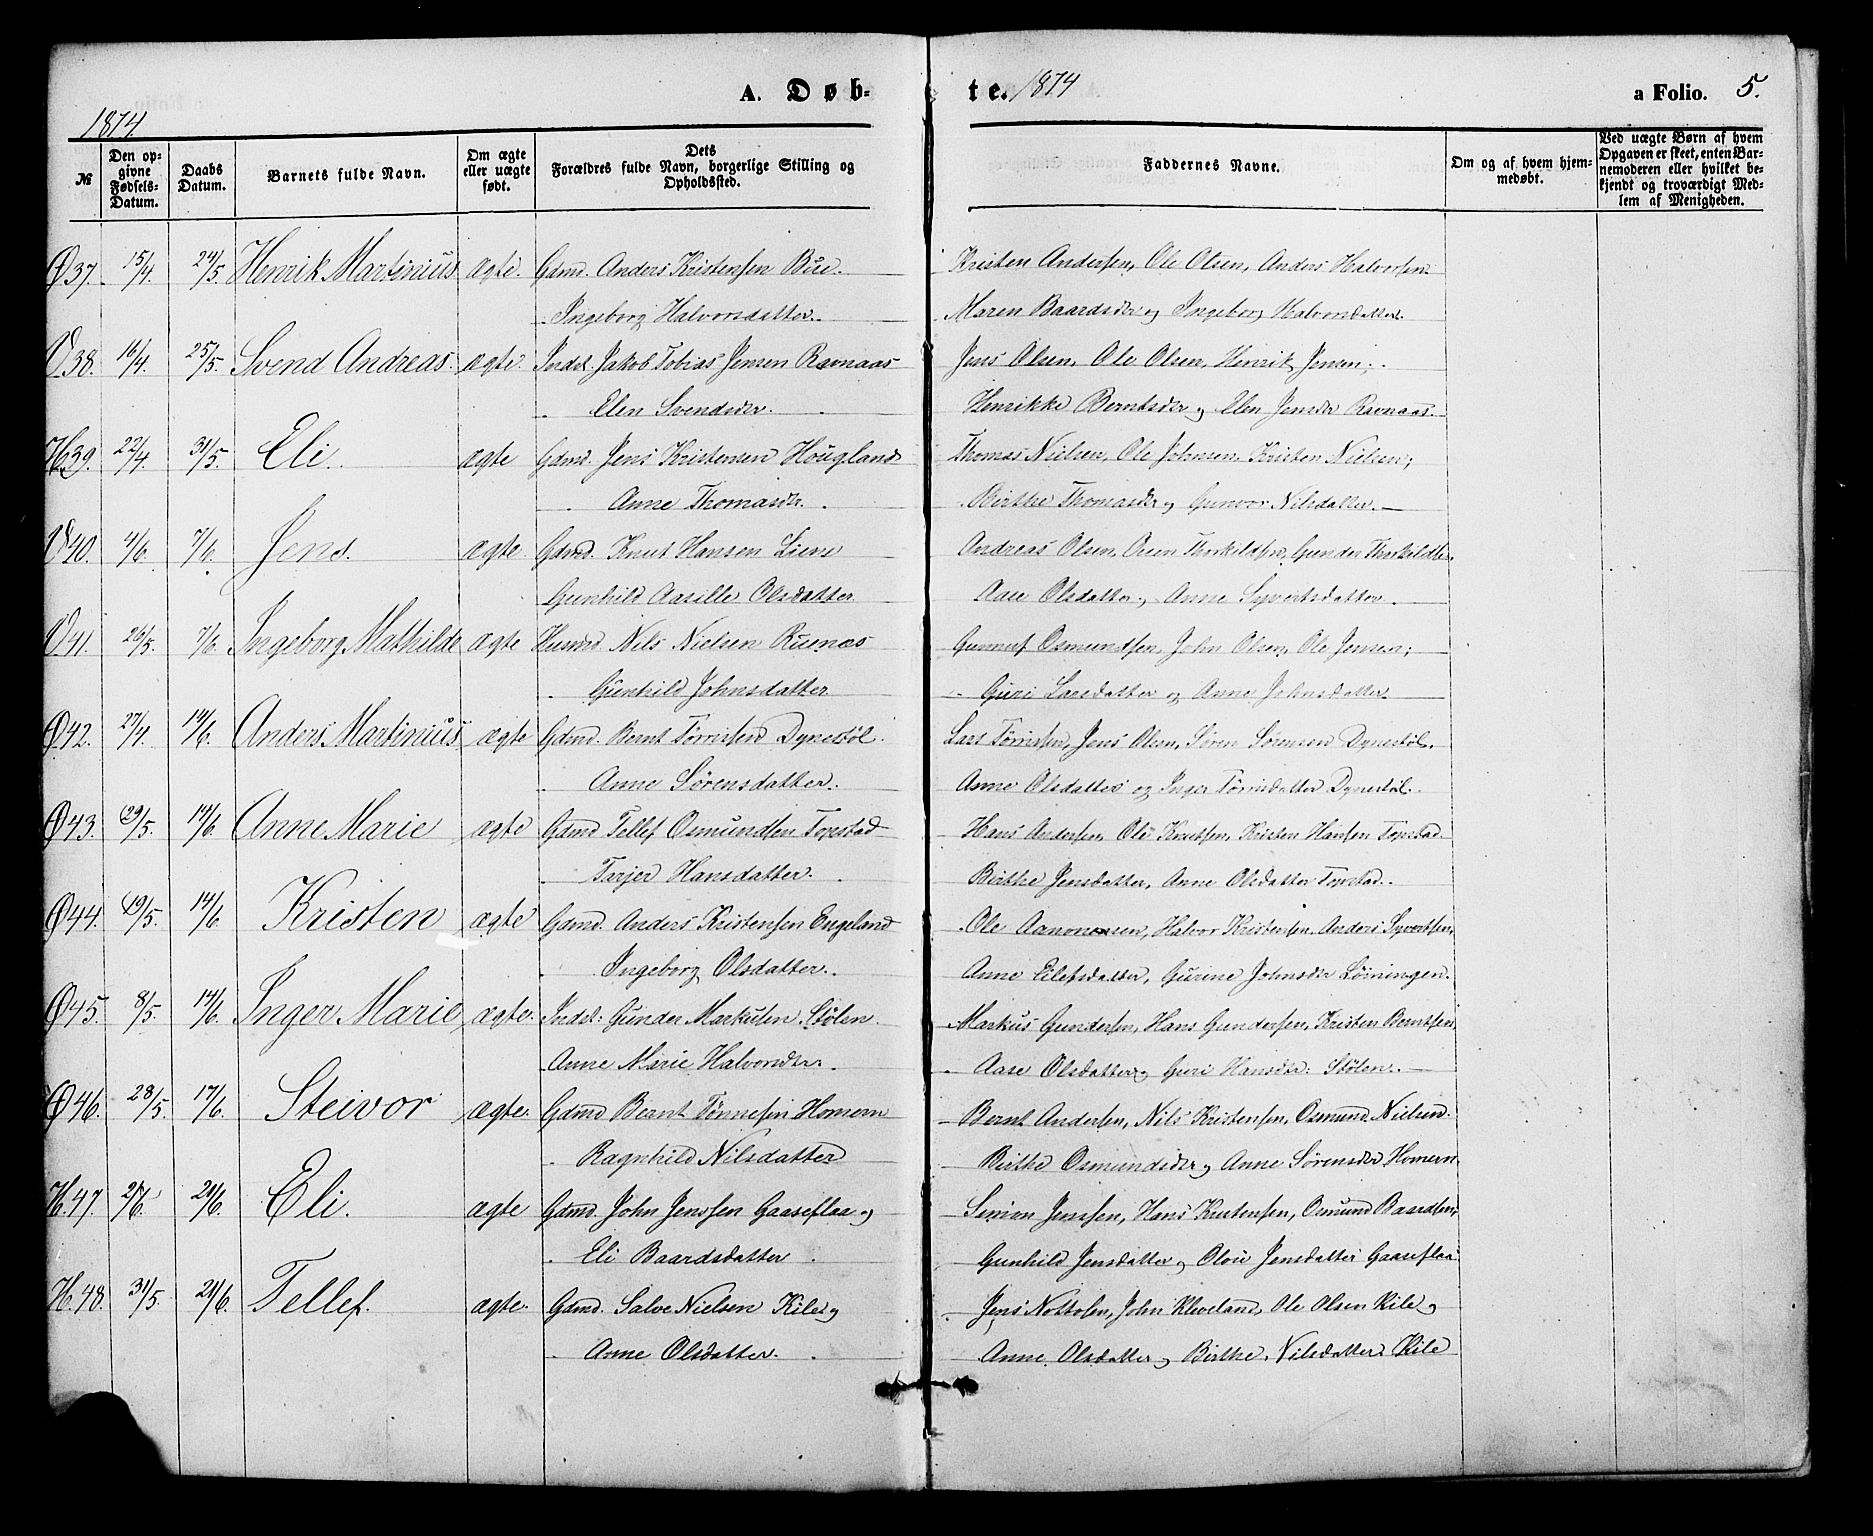 1874
A. Døb-
te. 1874
a Folio. 5.
№
Den op-
givne
Fødsels-
Datum.
Daabs
Datum.
Barnets fulde Navn.
Om ægte
eller uægte
født.
Dets
Forældres fulde Navn, borgerlige Stilling og
Opholdssted.
Faddernes Navne.
Om og af hvem hjem-
medøbt.
Ved uægte Børn af hvem
Opgaven er skeet, enten Bar-
nemoderen eller hvilket be-
kjendt og troværdigt Med-
lem af Menigheden.
Ø37. 15/4. 24/5. Henrik Martinius ægte. Gdmd. Anders Kristensen Bue. Kristen Andersen, Ole Olsen, Anders Halvorsen
Ingeborg Halvorsdatter. Maren Baardsdr og Ingeborg Halvorsdatter.
V38. 16/4. 25/5. Svend Andreas. ægte. Inderl. Jakob Tobias Jensen Ravnaas Jens Olsen, Ole Olsen, Henrik Jensen;
Elen Svendsdr. Henrikke Berntsdr og Elen Jensdr Ravnaas.
H39. 22/4. 31/5. Eli. ægte Gdmd. Jens Kristensen Hougland Thomas Nielsen, Ole Johnsen, Kristen Nielsen;
Anne Thomasdr. Birthe Thomasdr og Gunvor Nilsdatter.
V40. 4/6. 7/6. Jens. ægte. Gdmd. Knut Hansen Liene Andreas Olsen, Oeen Thorkildsen, Gunder Thorkildsen,
Gunhild Aasille Olsdatter Aase Olsdatter og Anne Syvertsdatter.
V41. 26/5. 7/6. Ingeborg Mathilde ægte Husmd. Nils Nielsen Ruenæs Gunnuf Osmundsen, John Olsen, Ole Jensen;
Gunhild Johnsdatter Guri Larsdatter og Anne Johnsdatter
Ø42. 27/4. 14/6. Anders Martinius ægte Gdmd. Bernt Tørrissen Dynestøl. Lars Tørrissen, Jens Olsen, Søren Sørensen Dynestøl.
Anne Sørensdatter. Anne Olsdatter og Inger Tørrisdatter Dynestøl.
Ø43. 29/5. 14/6. Anne Marie ægte Gdmd Tellef Osmundsen Topstad Hans Andersen, Ole Knutsen, Kristen Hansen Topstad.
Tarjer Hansdatter. Birthe Jensdatter, Anne Olsdatter Topstad.
Ø44. 19/5. 14/6. Kristen ægte Gdmd. Anders Kristensen Engeland Ole Aanonsen, Halvor Kristensen, Anders Syvertsen,
Ingeborg Olsdatter. Anne Eilefsdatter, Gurine Johnsdr Løiningen.
Ø45. 8/5. 14/6. Inger Marie ægte. Inderl: Gunder Markusen Stølen. Markus Gundersen, Hans Gundersen, Kristen Berntsen
Anne Marie Halvorsdr. Aase Olsdatter og Guri Hansdr: Stølen.
Ø46. 28/5. 17/6. Steivor ægte. Gdmd Bernt Tønnesen Homern Bernt Andersen, Nils Kristensen, Osmund Nielsen.
Ragnhild Nilsdatter Birthe Osmundsdr og Anne Sørensdr Homern.
H.47. 2/6. 21/6. Eli. ægte Gdmd. John Jenssen Gaaseflaa og Simon Jenssen, Hans Kristensen, Osmund Baardsen;
Eli Baardsdatter Gunhild Jensdatter og Olou Jensdatter Gaaseflaa
H.48. 31/5. 21/6. Tellef. ægte. Gdmd. Salve Nielsen Kile og Jens Nottolen, John Kleveland, Ole Olsen Kile og
Anne Olsdatter. Anne Olsdatter og Birthe Nilsdatter Kile